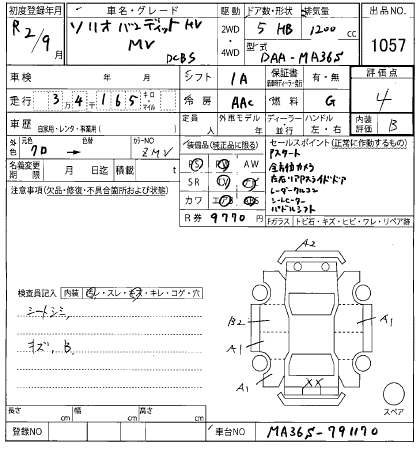 初度登録年月 車名・グレード 駆動 ドア数・形状 排気量 出品NO.
R2/9月 ソリオ バンディット HV MV DCBS 2WD・4WD 5 HB 1200cc 1057
型式 DAA-MA36S
車検 年 月 シフト IA 保証書 有・無 評価点 4
走行 3万4千165 キロ・マイル 冷房 AAC 燃料 G
車歴 自家用・レンタ・事業用( ) 定員 人 外車モデル 年 ディーラー・並行 ハンドル 左・右 内装評価 B
外色 元色 70 → 色替 カラーNO ZMV
装備品(純正品に限る) セールスポイント(正常に作動するもの)
名義変更期限 月 日迄 積載 t
PS PW AW
SR TV
カワ エアB ABS
R券 9770
Pスタート
全方位カメラ
左右リアPスライドドア
レーダークルコン
シートヒーター
パドルシフト
注意事項(欠品・修復・不具合箇所および状態)
Fガラス トビ石・キズ・ヒビ・ワレ・リペア跡
A2
検査員記入 内装 ・スレ・ ・キレ・コゲ・穴
シートシミ
キズ、B
B2 A1
A1
A1 XX
スペア
長さ cm 幅 cm 高さ cm
登録NO 車台NO MA36S-791170